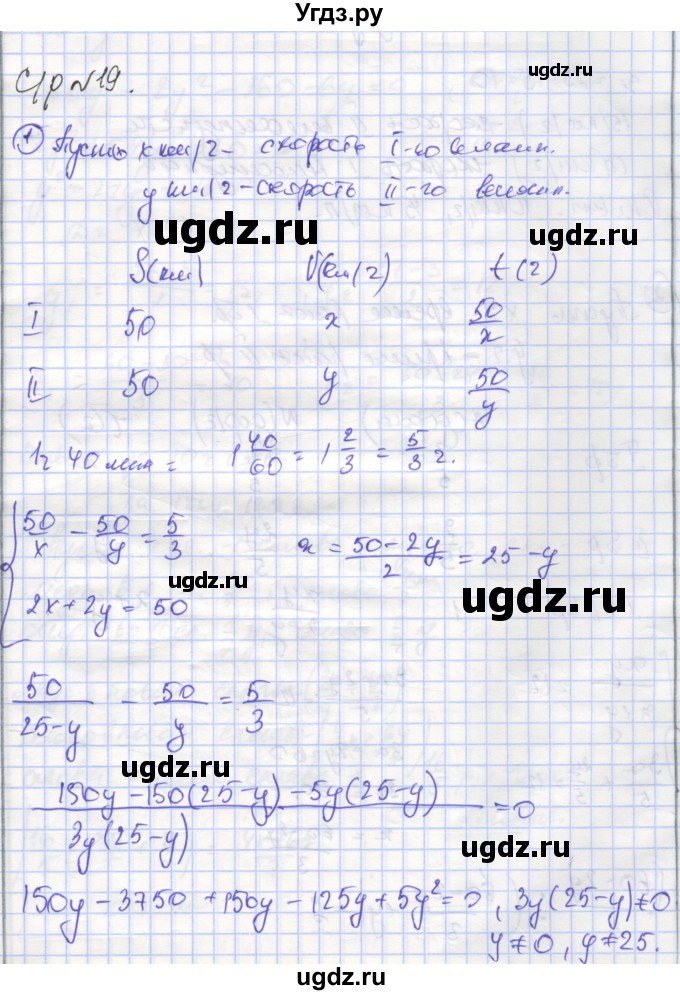 Угдз.ру
С/р №19.
ugdz.ru
① Пусть x км/г - скорость I-го велосип.
y км/г - скорость II-го велосип.
ugdz.ru ugdz.ru
S(км) V(км/г) t(г)
I 50 x 50/x
II 50 y 50/y
1г 40 мин = 1 40/60 = 1 2/3 = 5/3 г.
ugdz.ru
50/x - 50/y = 5/3 x = (50-2y)/2 = 25-y
ugdz.ru
2x+2y = 50
50/(25-y) - 50/y = 5/3
ugdz.ru
(150y-150(25-y)-5y(25-y))/(3y(25-y)) = 0
ugdz.ru
150y - 3750 + 150y - 125y + 5y² = 0, 3y(25-y)≠0
y≠0, y≠25.
ugdz.ru ugdz.ru
ugdz.ru